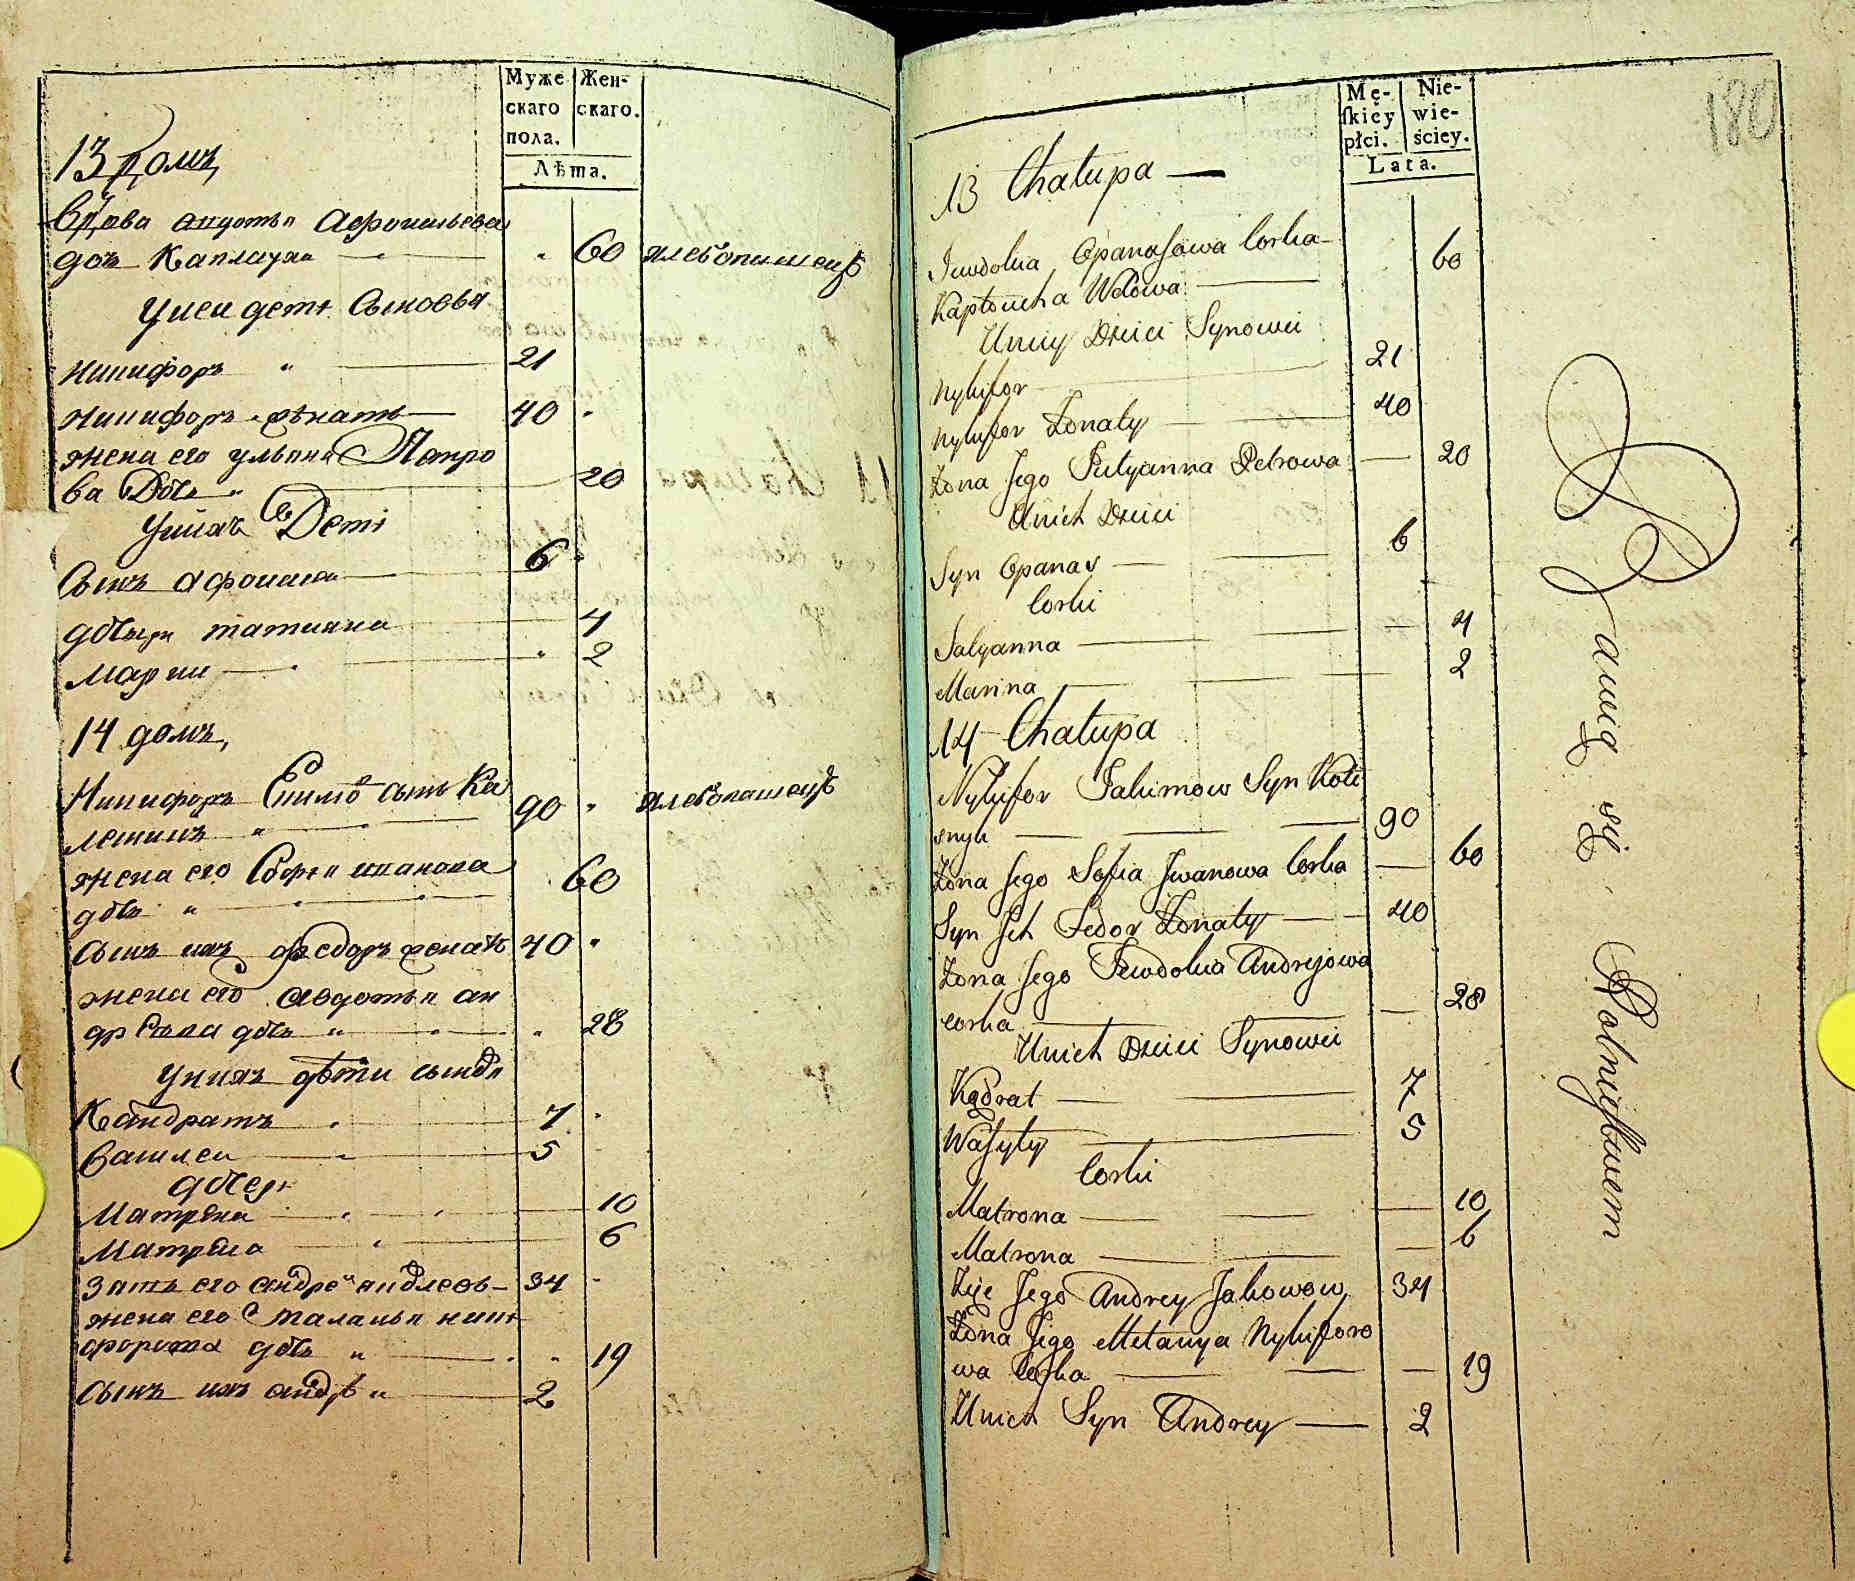 Муже Жен-
скаго скаго.
пола.
Лѣта.
13 домъ
Вдова авдотья Афонасьева
дочъ Каплауха 60 хлебопашецъ
Униеи дети Сыновья
Никифоръ 21
Никифоръ женатъ 40
жена его ульяна Петро
ва Дочь 20
Унихъ Дети
Сынъ афонасеи 6
дочери татиана 4
Марина 2
14 домъ
Никифоръ Екимо сынъ Ко
90 хлебопашецъ
жена его Софья иванова
дочь 60
сынъ ихъ федоръ женатъ 40
жена его авдотья ан
дреева дочь 28
Унихъ дѣти сыновя
Кандратъ 7
Василеи 5
дочери
Матрена 10
Матрена 6
Зять его андреи 34
жена его маланья ники
форова дочь 19
сынъ ихъ андрѣи 2
180
Mę- Nie-
ſkiey wie-
płci. ściey.
Lata.
13 Chałupa
Juwdokia Opanasowa Corka 60
Kapłoucha Wdowa
Uniey Dzieci Synowei
Nykifor 21
Nykifor Zonaty 40
Zona Jego Julyanna Petrowa 20
Unich Dzieci
Syn Opanas 6
Corki
Tatyanna 4
Marina 2
14 Chałupa
Nykifor Jakimow Syn Kole
snyk 90
Zona Jego Sofia Jwanowa Corka 60
Syn Jch Fedor Zonaty 40
Zona Jego Jewdokia Andrejowa
corka 28
Unich Dzieci Synowei
Kądrat 7
Wasyly 5
Corki
Matrona 10
Matrona 6
Zięć Jego Andrey Jakowow 34
Zona Jego Metanya Nykiforo
wa Corka 19
Unich Syn Andrey 2
Bawią się Rolnictwem